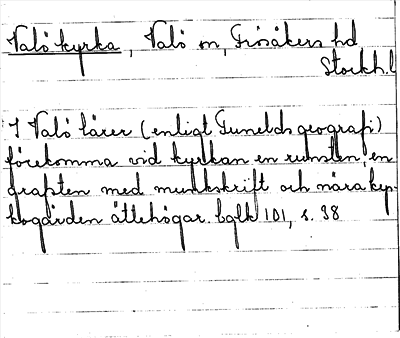 Valö kyrka, Valö sn, Frösåkers hd
Stockh.l
I Valö lärer (enligt Tunelds geografi)
förekomma vid kyrkan en runsten, en
grafsten med munkskrift och nära kyr-
kogården ättehögar. bqlk 101, s. 38